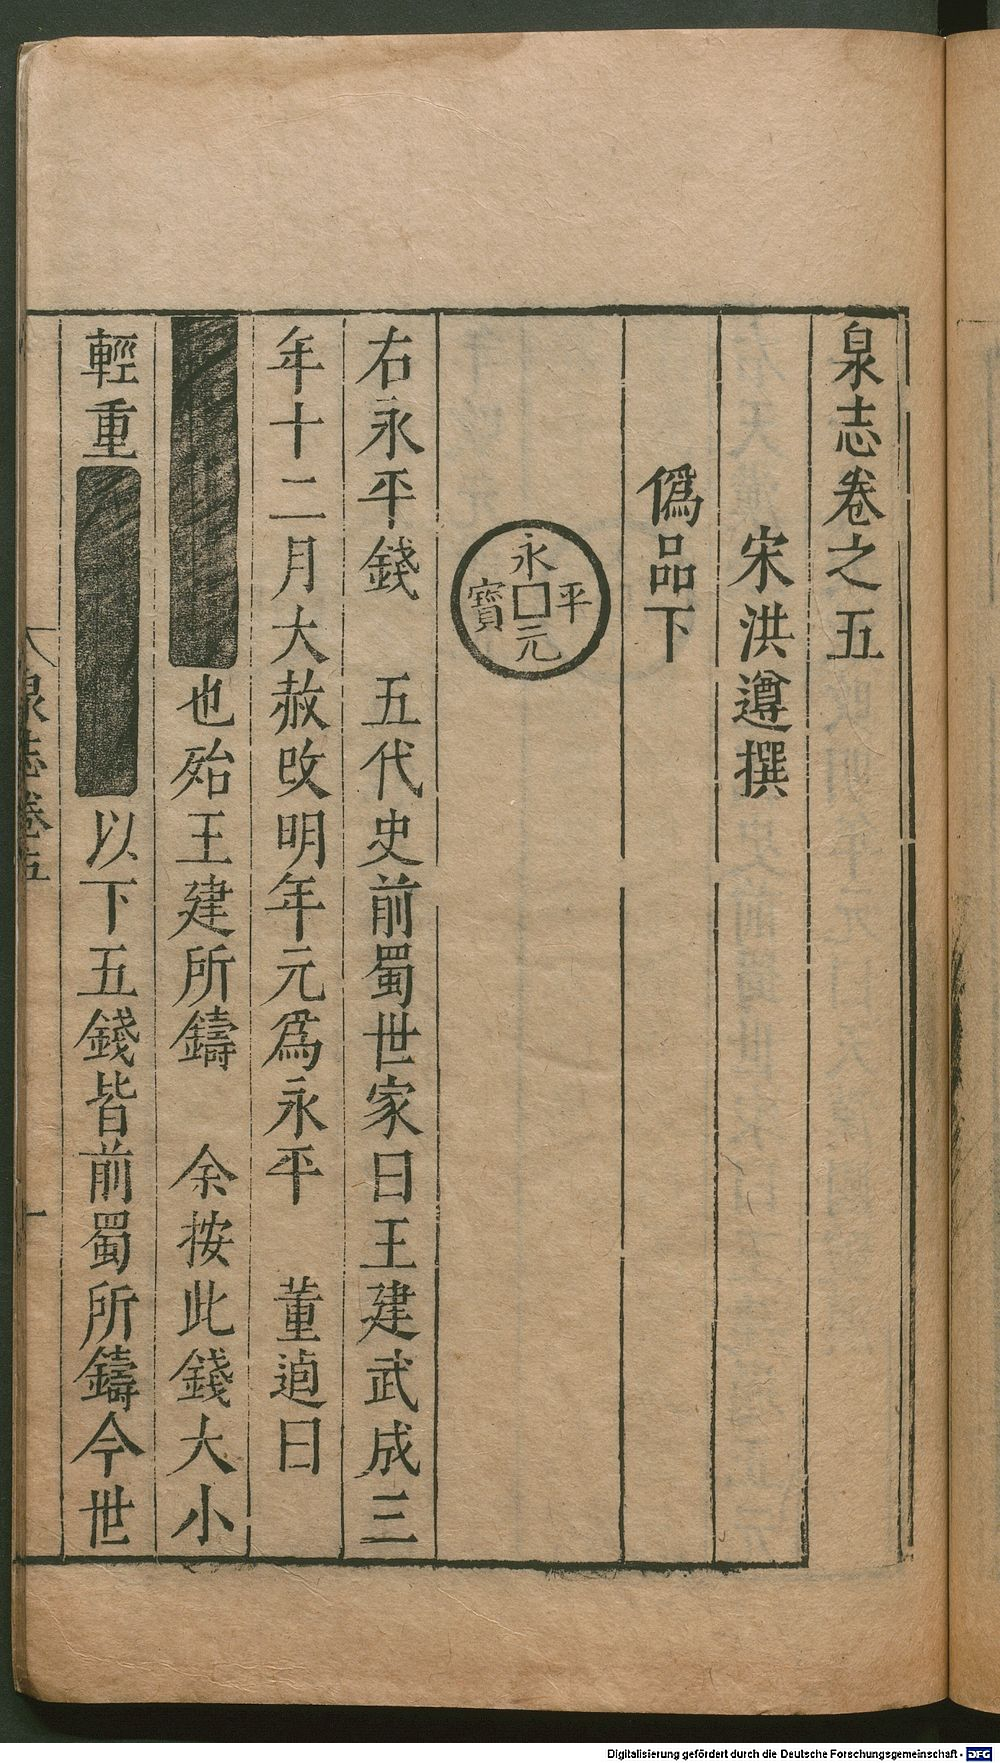 泉志卷之五
宋洪遵撰
僞品下
永平元寶
右永平錢　五代史前蜀世家曰王建武成三
年十二月大赦改明年元爲永平　董逌曰
也殆王建所鑄　余按此錢大小
輕重
以下五錢皆前蜀所鑄今世
泉志卷五
一
Digitalisierung gefördert durch die Deutsche Forschungsgemeinschaft - DFG